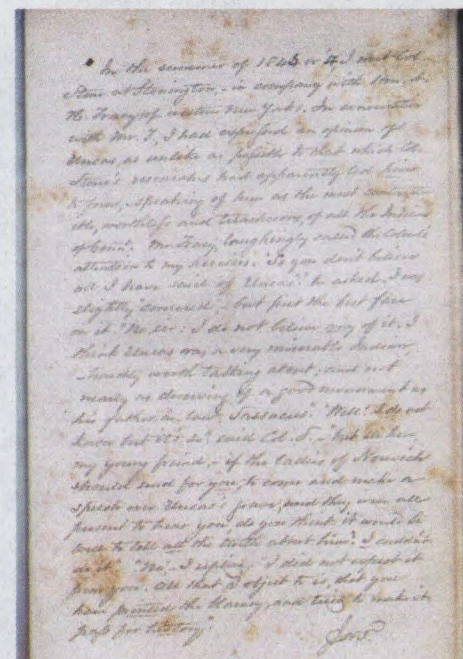 In the summer of 1843 or 4, I met Col.
Stone at Stonington, in company with Hon. A.
H. Tracy of western New York. In conversation
with Mr. T, I had expressed an opinion of
Uncas, as unlike as possible to that which Col.
Stone's researches had apparently led him
to form, speaking of him as the most
worthless and treacherous, of all the Indians
of Conn. Mr. Tracy laughingly called the Colonel's
attention to my heresies. "So you don't believe
all I have said of Uncas?" he asked. I was
slightly cornered, but put the best face
on it. "No, sir. I do not believe any of it. I
think Uncas was a very miserable Indian,
hardly worth talking about, and not
nearly so deserving of a good monument as
his father in law, Sassacus." "Well! I do not
know but it's so," said Col. S, "but
my young friend, if the ladies of Norwich
should send for you, to come and make a
speech over Uncas's grave, and they were all
present to hear you, do you think it would be
well to tell all the truth about him? I couldn't
do it." "No," I replied, "I did not expect it
from you. All that I object to is, that you
have printed the and tried to make it
pass for history."